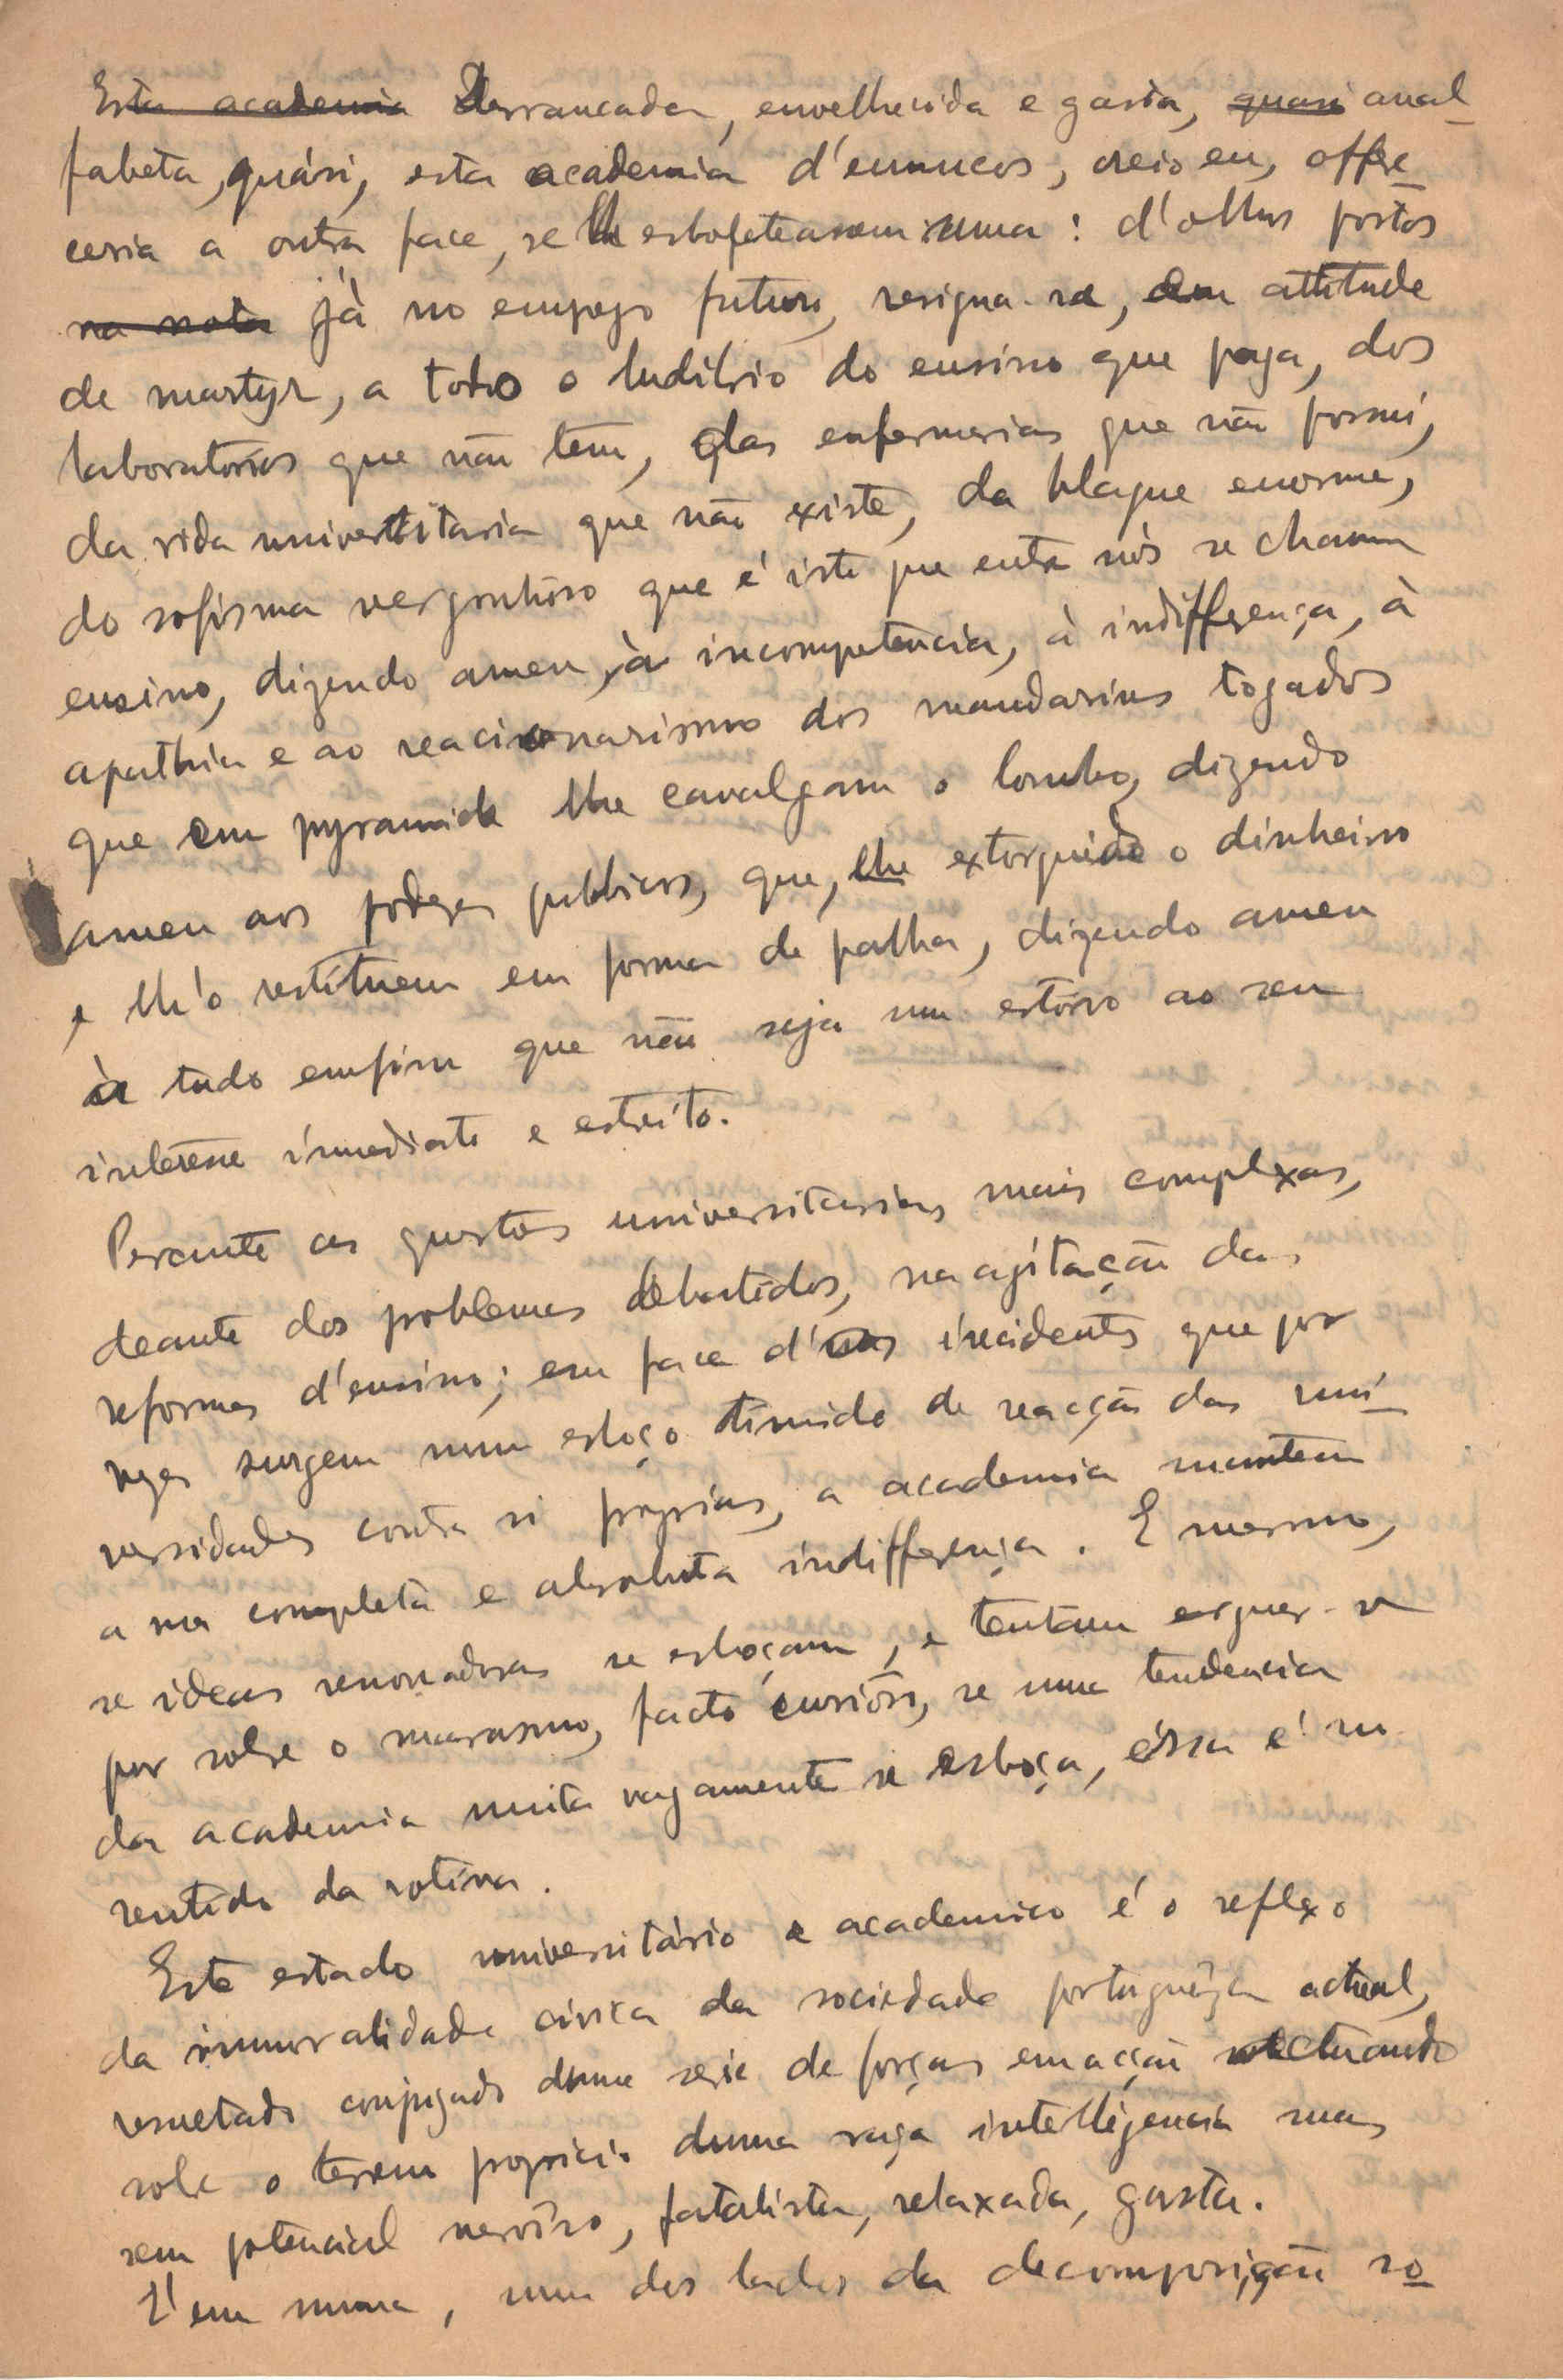 Esta academia Derrancada, envelhecida e gasta, quasi anal-
fabeta, quási, esta academia d'eunucos, creio eu, offre-
ceria a outra face, se lh'esbofeteassem uma: d'olhos postos
na nota já no emprego futuro, resigna-se, em attitude
de martyr, a todo o ludibrio do ensino que paga, dos
laboratorios que não tem, das enfermarias que não possui,
da vida universitaria que não existe, da blague enorme,
do sofisma vergonhoso que é isto que entre nós se chama
ensino, dizendo amen, à incompetencia, à indifferença, à
apathia e ao reacionarismo dos mandarins togados
que em pyramide lhe cavalgam o lombo, dizendo
amen aos poderes publicos, que, lhe extorquido o dinheiro
e lh'o restituem em forma de palha, dizendo amen
a tudo emfim que não seja um estorvo ao seu
interesse immediato e estreito.
Perante as questões universitarias mais complexas,
deante dos problemas debatidos, na agitação das
reformas d'ensino; em face d'uns incidentes que por
vezes surgem num esboço timido de reacção das uni-
versidades contra si proprias, a academia mantem
a sua completa e absoluta indifferença. E mesmo,
se ideas renovadoras se esboçam, e tentam erguer-se
por sobre o marasmo, facto curioso, se uma tendencia
da academia muito vagamente se esboça, essa é no
sentido da rotina.
Este estado universitário e academico é o reflexo
da immoralidade civica da sociedade portuguêza actual,
resultado conjugado duma serie de forças em acção actuando
sobre o terreno propicio duma raça intelligencia mas
sem potencial nervôso, fatalista, relaxada, gasta.
É em summa, um dos lados da decomposição so-